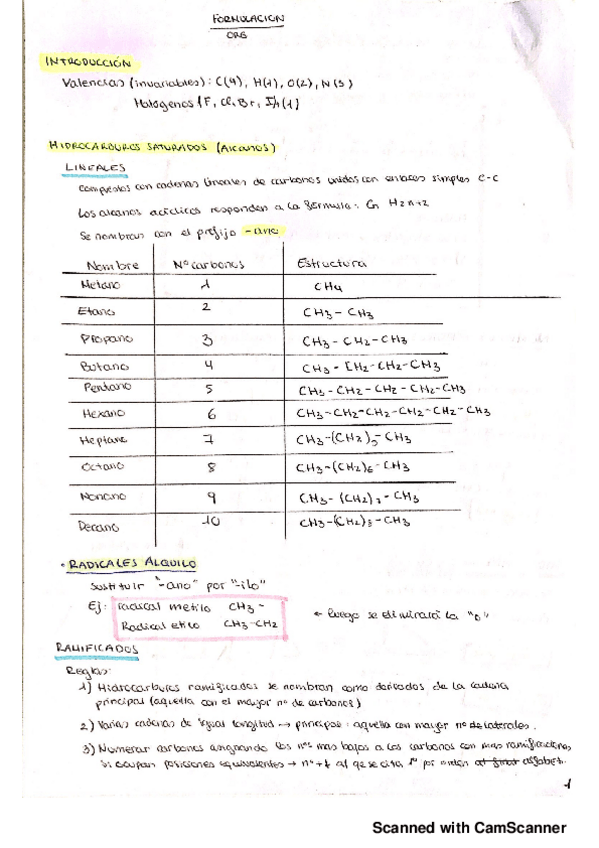 FORMULACION
ORG
INTRODUCCIÓN
Valencias (invariables): C(4), H(1), O(2), N(3)
Halógenos (F, Cl, Br, I), (1)
HIDROCARBUROS SATURADOS (Alcanos)
LINEALES
Compuestos con cadenas lineales de carbonos unidos con enlaces simples C-C
Los alcanos acíclicos responden a la fórmula: Cn H2n+2
Se nombran con el prefijo -ano
Nombre Nº carbonos Estructura
Metano 1 CH4
Etano 2 CH3 - CH3
Propano 3 CH3 - CH2 - CH3
Butano 4 CH3 - CH2 - CH2 - CH3
Pentano 5 CH3 - CH2 - CH2 - CH2 - CH3
Hexano 6 CH3 - CH2 - CH2 - CH2 - CH2 - CH3
Heptano 7 CH3 - (CH2)5 - CH3
Octano 8 CH3 - (CH2)6 - CH3
Nonano 9 CH3 - (CH2)7 - CH3
Decano 10 CH3 - (CH2)8 - CH3
• RADICALES ALQUILO
Sustituir "-ano" por "-ilo"
Ej: radical metilo CH3 -
Radical etilo CH3 - CH2
← luego se eliminará la "o"
RAMIFICADOS
Reglas:
1) Hidrocarburos ramificados se nombran como derivados de la cadena
principal (aquella con el mayor nº de carbonos)
2) Varias cadenas de igual longitud → principal: aquella con mayor nº de laterales.
3) Numerar carbonos asignando los nºs mas bajos a los carbonos con mas ramificaciones,
si ocupan posiciones equivalentes → nº + ↓ al que se cita 1º por orden alfabét.
1
Scanned with CamScanner